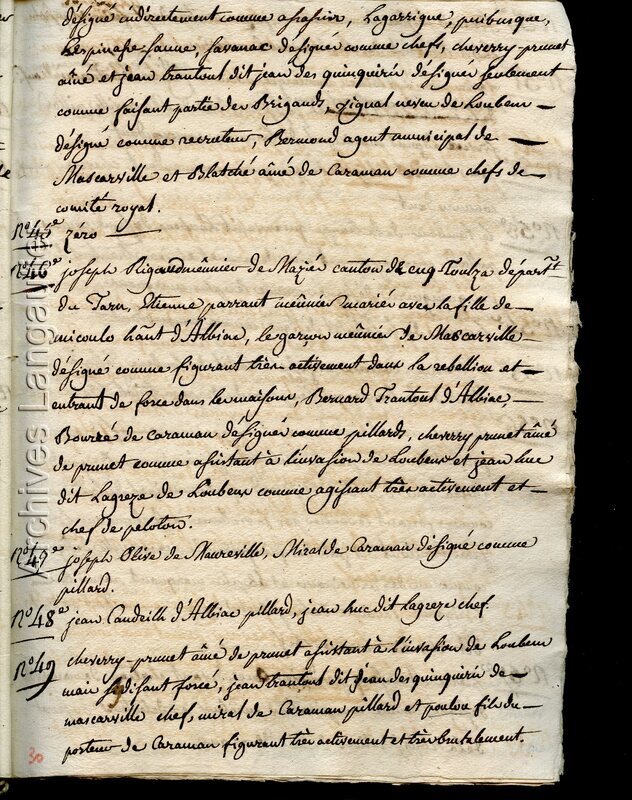 désigné indirectement comme assassin, Lagarrigue, puibusque,
Lespinasse-Saune, Savanac designé comme chefs, cheverry-prunet
aîné et jean trantoul dit jean des quinquiris désigné seulement
comme faisant partie des Brigands, Rigual neveu de Loubens
désigné comme recruteur, Bermond agent municipal de
Mascarville et Blatché aîné de Caraman comme chefs de
comité royal.
N.º 45.e zéro
N.º 46.e joseph Rigaud meûnier de Maziés canton de cuq Toulza départ.t
du Tarn, Etienne parrant meûnier marié avec la fille de
micoulo hãnt d'Albiac, le garçon meûnier de Mascarville
désigné comme figurant très activement dans la rebellion et
entrant de force dans les maisons, Bernard Trantoul d'Albiac,
Bourrée de Caraman designés comme pillards, cheverry prunet aîné
de prunet comme assistant à l'invasion de Loubens et jean huc
dit Lagreze de Loubens comme agissant très activement et
chef de peloton.
N.º 47.e joseph Olive de Maureville, Miral de Caraman désigné comme
pillard.
N.º 48.e jean Caudeilh d'Albiac pillard, jean huc dit Lagreze chef.
N.º 49 cheverry-prunet aîné de prunet assistant à l'invasion de Loubens
mais se disant forcé, jean trantoul dit jean des quinquiris de
mascarville chef, miral de Caraman pillard et poulou fils du
porteur de Caraman figurant très activement et très brutalement.
30
Archives Langalerie